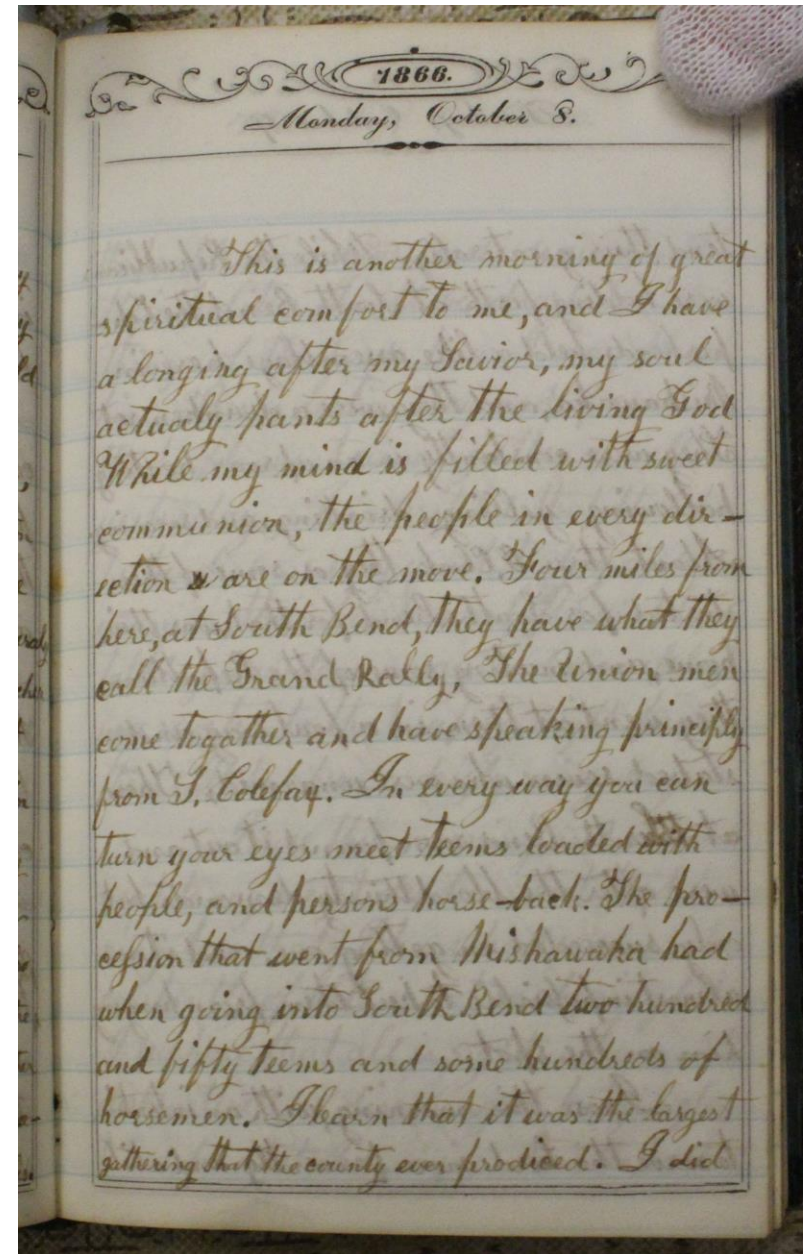 1866.
Monday, October 8.
This is another morning of great
spiritual comfort to me, and I have
a longing after my Savior, my soul
actualy pants after the living God
While my mind is filled with sweet
communion, the people in every dir-
ection are on the move. Four miles from
here, at South Bend, they have what they
call the Grand Rally, The Union men
come togather and have speaking principly
from S. Colefax. In every way you can
turn your eyes meet teems loaded with
people, and persons horse-back. The pro-
cession that went from Mishawaka had
when going into South Bend two hundred
and fifty teems and some hundreds of
horsemen. I learn that it was the largest
gathering that the county ever prodiced. I did